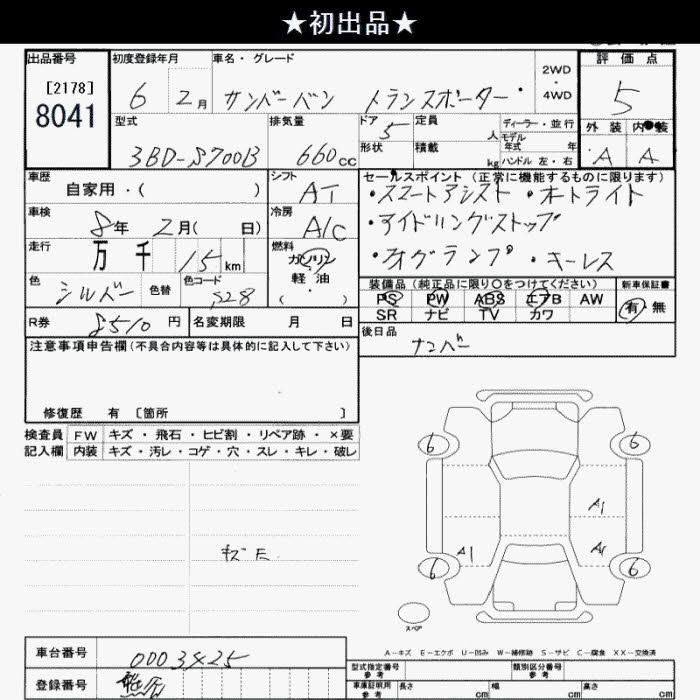 ★初出品★
出品番号 初度登録年月 車名・グレード 2WD ・ 4WD 評価点
[2178]
8041
6 2月 サンバーバン トランスポーター 5
型式 排気量 ドア 5 定員 人 ディーラー・並行 外装 内装
モデル年式 年
3BD-S700B 660cc 形状 積載 kg ハンドル 左・右 A A
車歴 自家用・( ) シフト AT セールスポイント (正常に機能するものに限ります)
・スマートアシスト ・オートライト
車検 8年 2月( 日) 冷房 A/C ・アイドリングストップ
走行 万 千 15km 燃料 ガソリン ・ 軽油 ( ・ )
・フォグランプ ・キーレス
色 シルバー 色替 色コード S28
装備品 (純正品に限り○をつけてください) 新車保証書
PS PW ABS エアB AW 有・無
SR ナビ TV カワ
R券 8510円 名変期限 月 日 後日品 ナンバー
注意事項申告欄(不具合内容等は具体的に記入して下さい)
修復歴 有 〔箇所 〕
検査員 FW キズ・飛石・ヒビ割・リペア跡・×要
記入欄 内装 キズ・汚レ・コゲ・穴・スレ・キレ・破レ
キズ E
6 6
A1
A1 A1
6 6
スペア
A−キズ E−エクボ U−凹み W−補修跡 S−サビ C−腐食 XX−交換済
車台番号 0003425
型式指定番号 参考 類別区分番号 参考
登録番号 熊谷
車庫証明用 参考 長さ cm 幅 cm 高さ cm